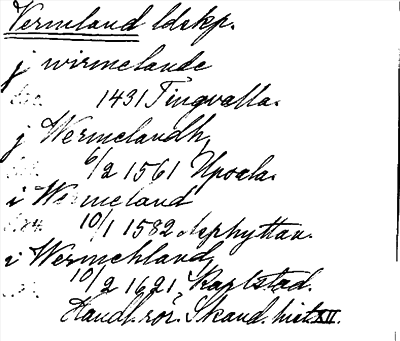 Vermland ldskp.
j wirmelande
1431 Tingvalla.
j Wermelandh
6/2 1561 Upsala.
i Wermeland
10/1 1582 Asphyttan.
i Wermehland
10/2 1621, Karlstad.
Handl. rör. Skand. hist. XII.